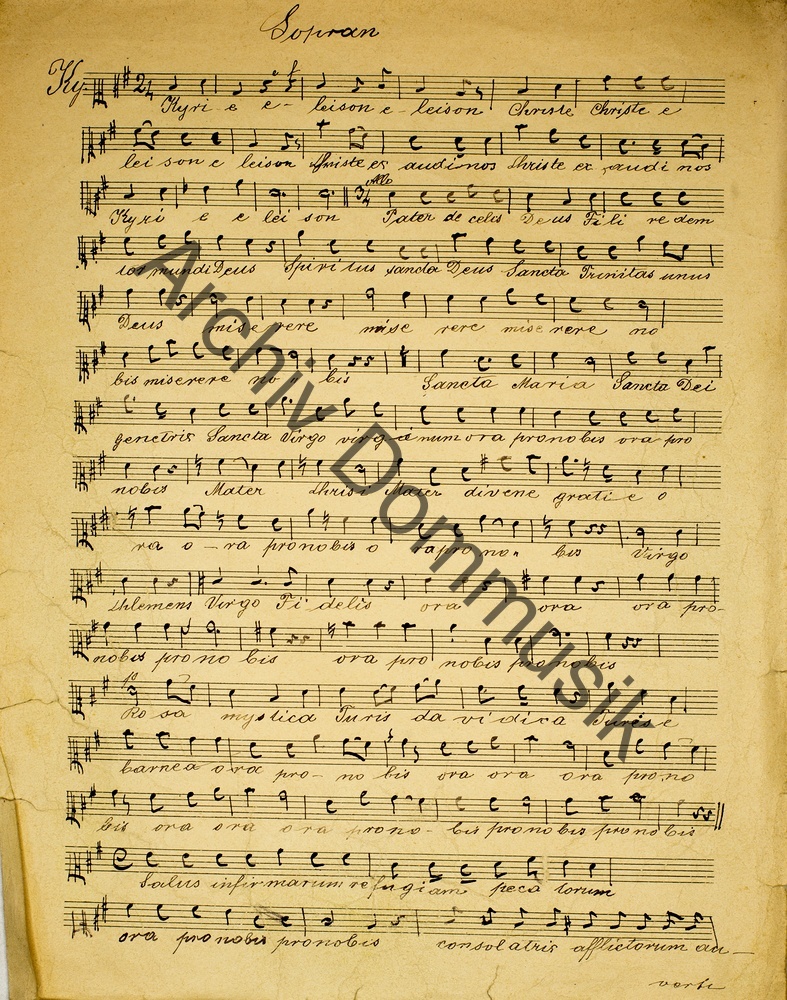 Sopran
Ky:
Kyri - e e - leison e - leison Christe Christe e
lei son e leison Christe ex audi nos Christe ex audi nos
Allo
Kyri e e lei son Pater de celis Deus Fili re dem
tor mundi Deus Spiri tus sancta Deus Sancta Trinitas unus
Deus mise rere mise rere mise rere no
bis miserere no bis Sancta Maria Sancta Dei
genetrix Sancta Virgo virginum ora pronobis ora pro
nobis Mater Christi Mater divene grati e o
ra o - ra pronobis o ra pro no bis Virgo
Chlemens Virgo Fi delis ora ora ora pro-
nobis pro no bis ora pro nobis pro nobis
Ro sa mystica Turis da vidica Turis e
barnea ora pro - no bis ora ora ora pro no
bis ora ora ora prono - bis pronobis pronobis
Salus infirmarum refugiam peca torum
ora pronobis pronobis consolatrix afflictorum au -
verte
Archiv Dommusik